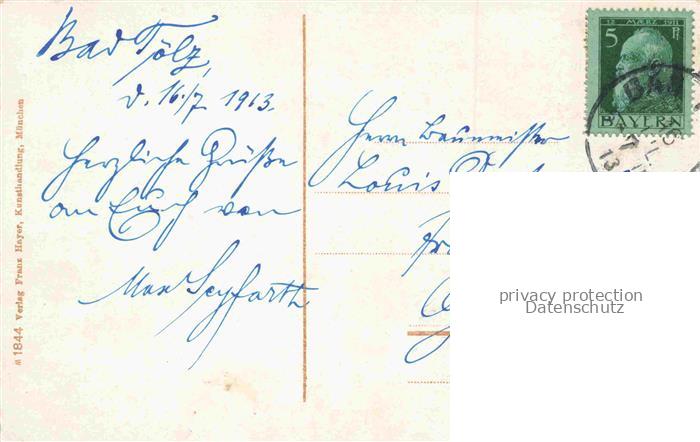 Bad Tölz,
d. 16./7. 1913.
Herzliche Grüße
an Euch von
Max Seyfarth
№ 1844 Verlag Franz Hayer, Kunsthandlung, München
12 MÆRZ 1911
5 Pf
BAYERN
BAD
13
Herrn Baumeister
Louis
privacy protection
Datenschutz